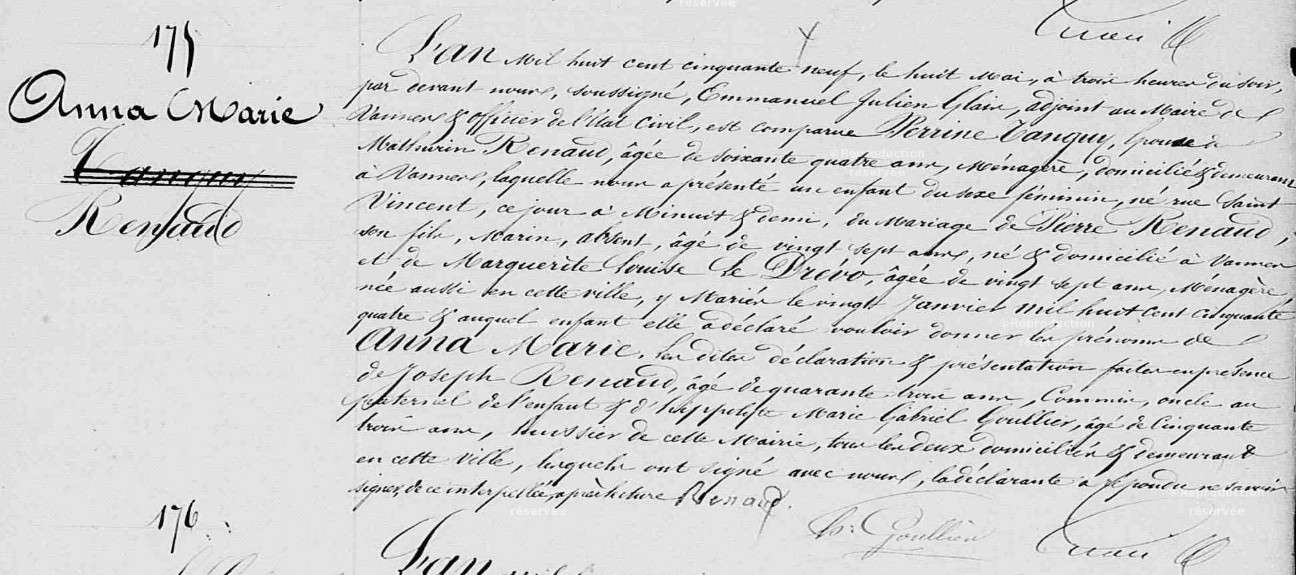 175
Anna Marie
Tanguy
Renaud
L'an mil huit cent cinquante neuf, le huit Mai, à trois heures du soir,
par devant nous, soussigné, Emmanuel Julien Glais, adjoint au Maire de
Vannes & officier de l'état Civil, est comparue Perrine Tanguy, épouse de
Mathurin Renaud, âgée de soixante quatre ans, Ménagère, domiciliée & demeurant
à Vannes, laquelle nous a présenté un enfant du sexe féminin, né rue Saint
Vincent, ce jour à Minuit & demi, du Mariage de Pierre Renaud,
son fils, Marin, absent, âgé de vingt sept ans, né & domicilié à Vannes
et de Marguerite Louise Le Drévo, âgée de vingt sept ans, Ménagère,
née aussi en cette ville, y Mariés le vingt Janvier mil huit cent cinquante
quatre & auquel enfant elle a déclaré vouloir donner les prénoms de
Anna Marie. Les dites déclaration & présentation faites en présence
de Joseph Renaud, âgé de quarante trois ans, Commis, oncle au
paternel de l'enfant & d'hippolyte Marie Gabriel Goullier, âgé de Cinquante
trois ans, huissier de cette Mairie, tous les deux domiciliés & demeurant
en cette ville, lesquels ont signé avec nous, la déclarante a répondu ne savoir
signer, de ce interpellée, après lecture Renaud.
h. Goullier
176
L'an mil
© Reproduction
réservée